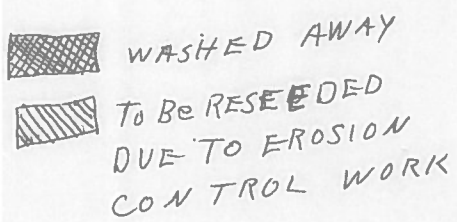 WASHED AWAY
TO Be RESEEDED
DUE TO EROSION
CONTROL WORK